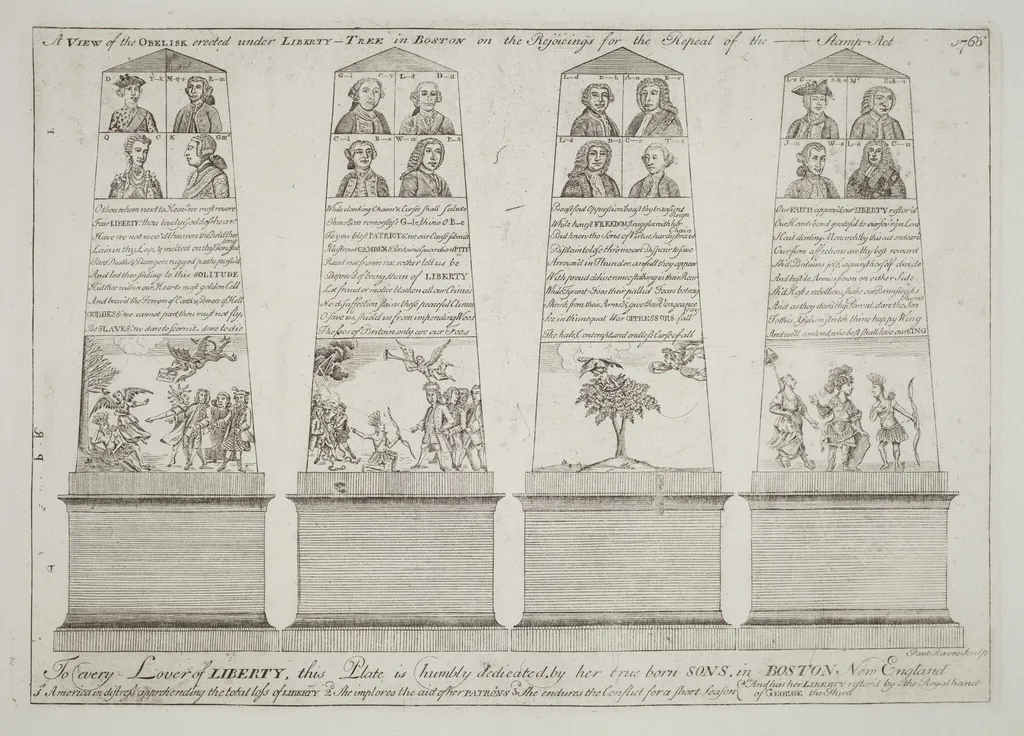 A VIEW of the OBELISK erected under LIBERTY-TREE in BOSTON on the Rejoicings for the Repeal of the —— Stamp-Act 1766
D Y-k M-q-s R-m
Q C K G
O thou whom next to Heav'n we most revere
Fair LIBERTY thou lovely Goddess hear
Have we not woo'd thee won thee held thee long
Lain in thy Lap & melted on thy Tongue
Thro Deaths & Dangers rugged paths pursu'd
And led thee smiling to this SOLITUDE
Hid thee within our Hearts most golden Cell
And brav'd the Powers of Earth & Powers of Hell
GODDESS we cannot part thou must not fly
Be SLAVES we dare to scorn it dare to die
G-l C-y L-d
C-l B-e W-m P-t
While clanking Chains & Curses shall salute
Thine Ears remorseless G-le thine O B-e
To you blest PATRIOTS we our Cause submit
Illustrious CAMDEN Britain's Guardian PITT
Recede not frown not rather let us be
Depriv'd of being than of LIBERTY
Let fraud or malice blacken all our Crimes
No disaffection stains these peaceful Climes
O save us shield us from impending Woes
The foes of Britain only are our Foes
L-d D-h A-n B-d
L-d C-s T-d
Boast foul Oppression boast thy transient Reign
While honest FREEDOM struggles with her Chain
But know the Sons of Virtue hardy brave
Disdain to lose thro mean Despair to save
Arrou'd in Thunder awfull they appear
With proud deliverance stalking in their Rear
While Tyrant Foes their pallid Fears betray
Shrink from their Arms & give their Vengeance way
See in th'unequal War OPPRESSORS fall
The hate, Contempt and endless Curse of all
J-n W-s L-d C-n
Our FAITH approv'd our LIBERTY restor'd
Our Hearts bend grateful to our sov'rgn Lord
Hail darling Monarch by this act endear'd
Our firm affections are thy best reward
Sh'd Britains self against herself divide
And hostile Armies frown on either Side
Sh'd Hosts rebellious shake our Brunswick's Throne
And as they dar'd thy Parent dare the Son
To this Asylum stretch thine happy Wing
And we'll contend who best shall love our KING
Paul Revere Sculp
To every Lover of LIBERTY, this Plate is humbly dedicated, by her true born SONS, in BOSTON New England
1st America in distress apprehending the total loss of LIBERTY 2d She implores the aid of her PATRONS 3d She endures the Conflict for a short Season 4th And has her LIBERTY restor'd by the Royal hand
of GEORGE the Third